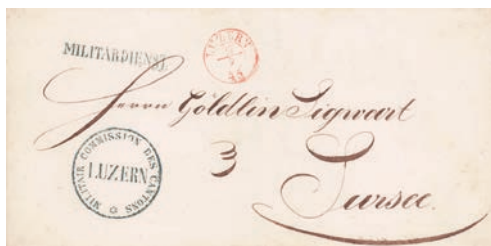 MILITÄRDIENST.
LUZERN
48
Herrn Göldlin Sigwart
3
Sursee.
MILITAIR COMMISSION DES CANTONS
LUZERN